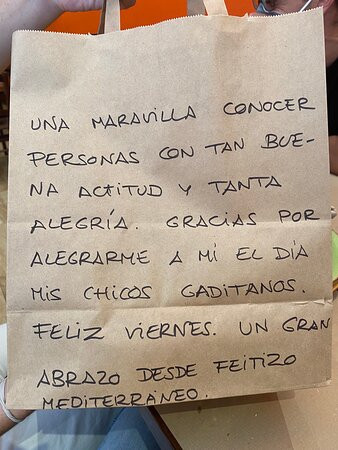 UNA MARAVILLA CONOCER
PERSONAS CON TAN BUE-
NA ACTITUD Y TANTA
ALEGRÍA. GRACIAS POR
ALEGRARME A MÍ EL DÍA
MIS CHICOS GADITANOS.
FELIZ VIERNES. UN GRAN
ABRAZO DESDE FEITIZO
MEDITERRÁNEO.